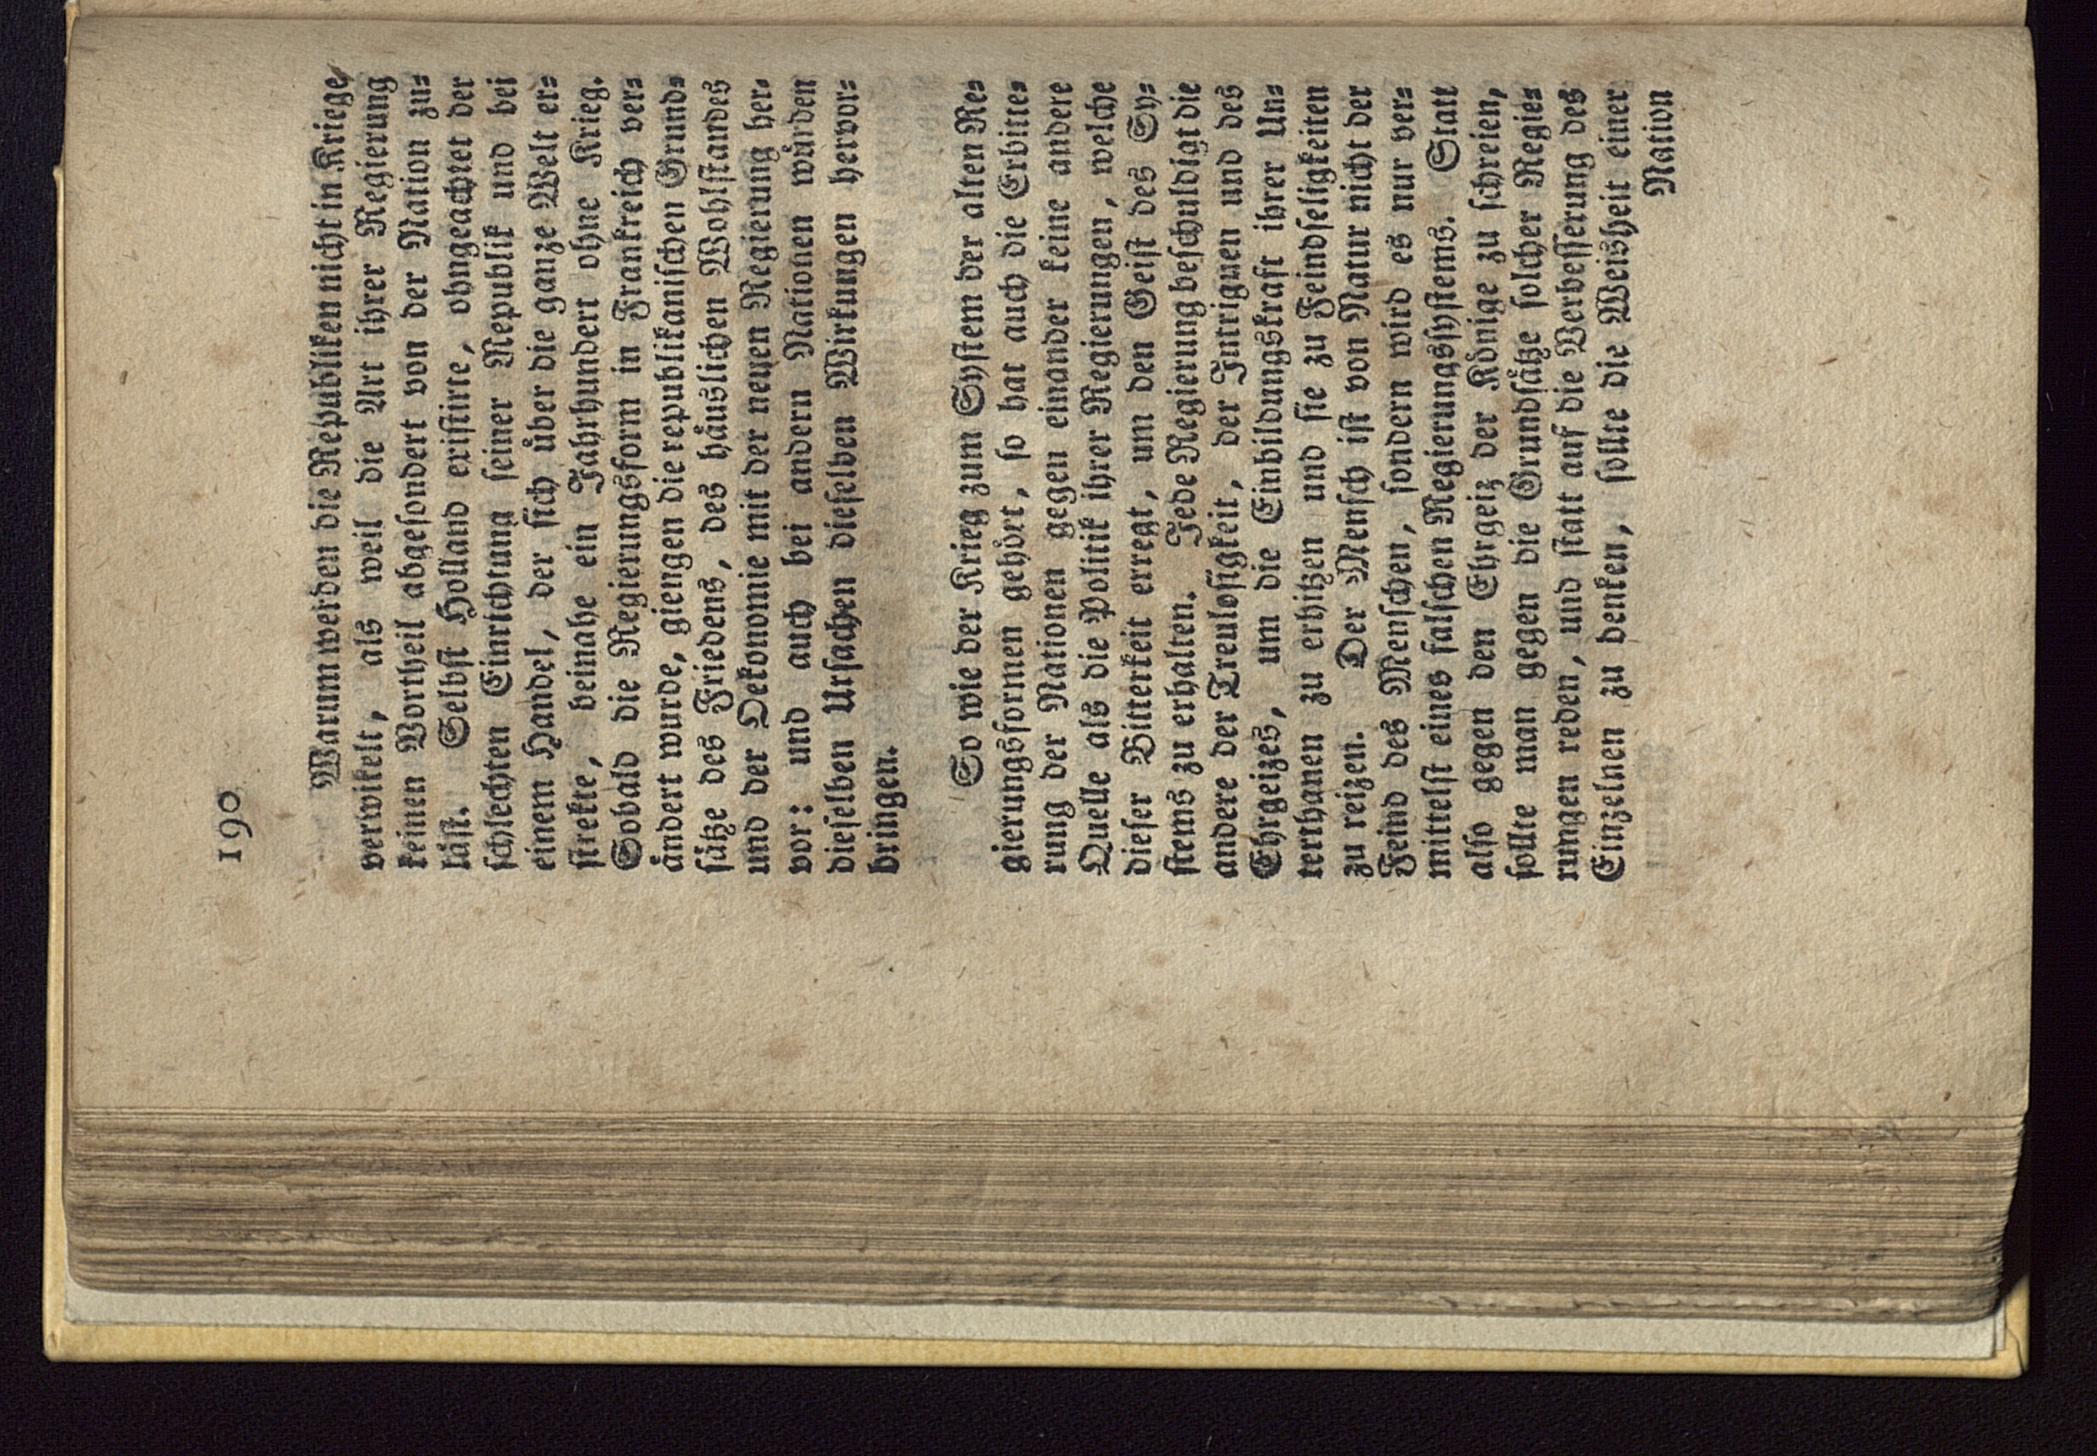 190
Warum werden die Republiken nicht in Kriege
verwikelt, als weil die Art ihrer Regierung
keinen Vortheil abgesondert von der Nation zu-
läst. Selbst Holland existirte, ohngeachtet der
schlechten Einrichtung seiner Republik und bei
einem Handel, der sich über die ganze Welt er-
strekte, beinahe ein Jahrhundert ohne Krieg.
Sobald die Regierungsform in Frankreich ver-
ändert wurde, giengen die republikanischen Grund-
sätze des Friedens, des häuslichen Wohlstandes
und der Oekonomie mit der neuen Regierung her-
vor: und auch bei andern Nationen würden
dieselben Ursachen dieselben Wirkungen hervor-
bringen.
So wie der Krieg zum System der alten Re-
gierungsformen gehört, so hat auch die Erbitte-
rung der Nationen gegen einander keine andere
Quelle als die Politik ihrer Regierungen, welche
dieser Bitterkeit erregt, um den Geist des Sy-
stems zu erhalten. Jede Regierung beschuldigt die
andere der Treulosigkeit, der Intriguen und des
Ehrgeizes, um die Einbildungskraft ihrer Un-
terthanen zu erhitzen und sie zu Feindseligkeiten
zu reizen. Der Mensch ist von Natur nicht der
Feind des Menschen, sondern wird es nur ver-
mittelst eines falschen Regierungssystems. Statt
also gegen den Ehrgeiz der Könige zu schreien,
sollte man gegen die Grundsätze solcher Regie-
rungen reden, und statt auf die Verbesserung des
Einzelnen zu denken, sollte die Weisheit einer
Nation